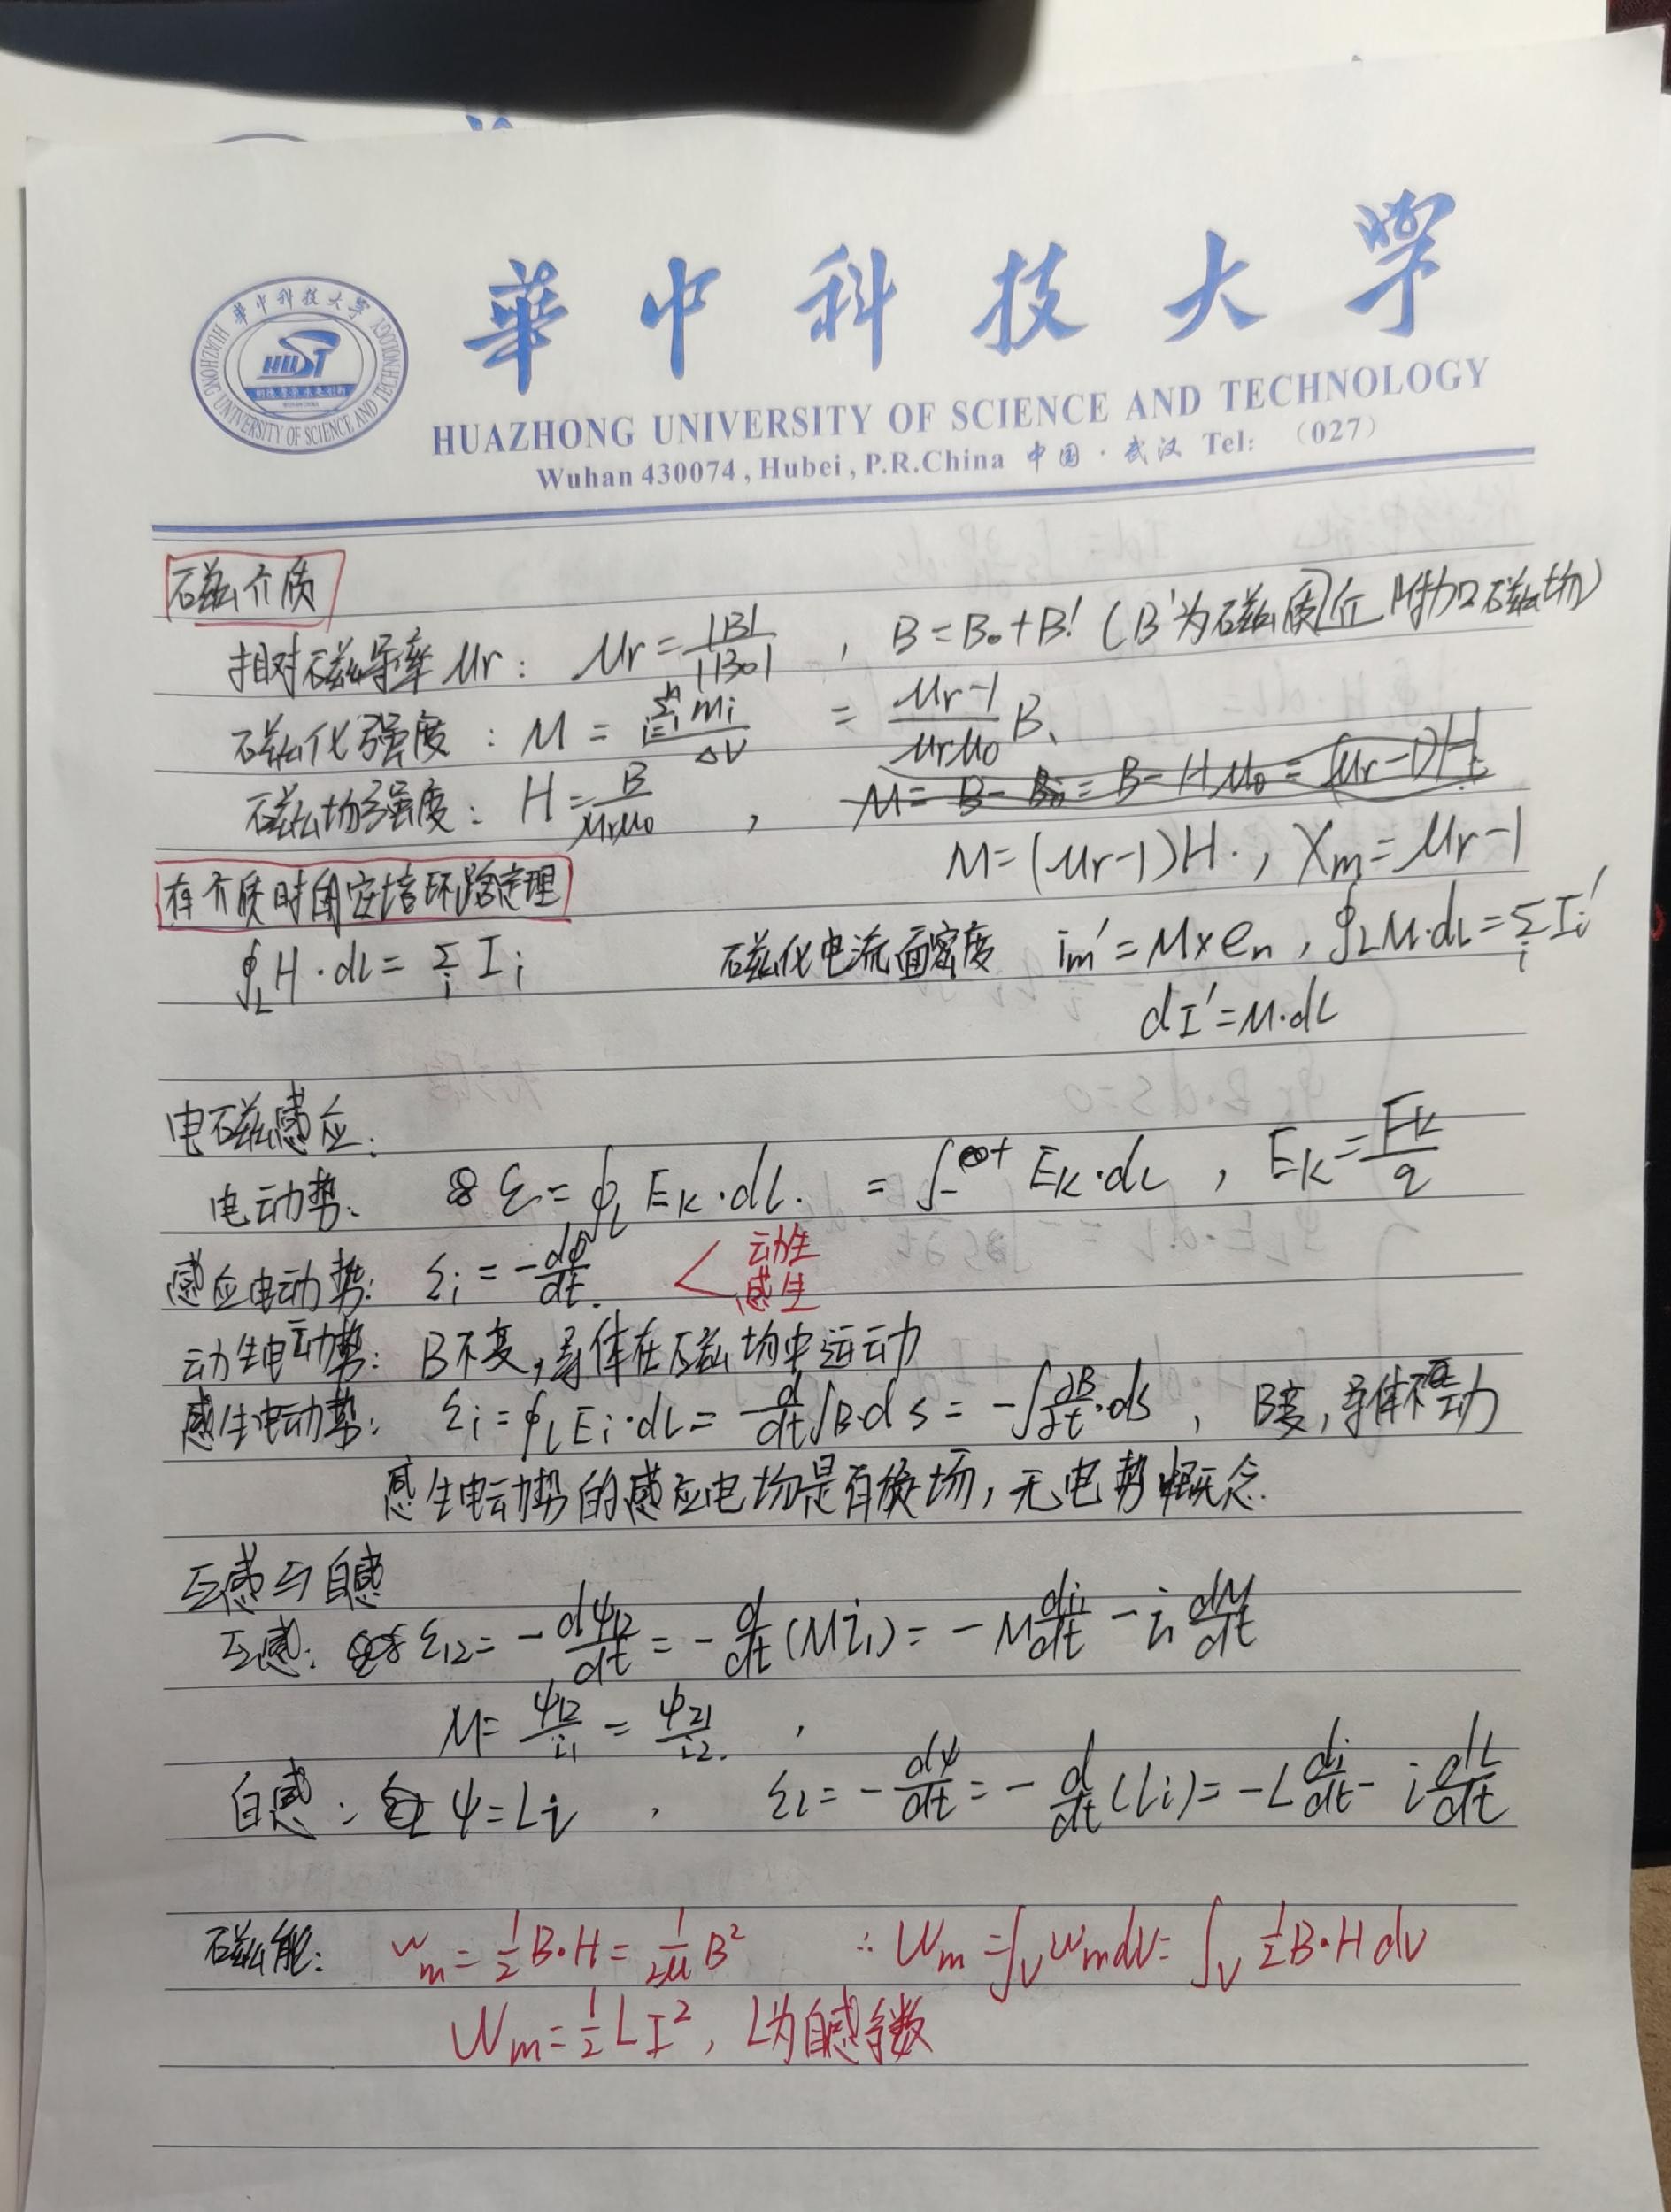 華中科技大学
HUAZHONG UNIVERSITY OF SCIENCE AND TECHNOLOGY
Wuhan 430074, Hubei, P.R.China 中国·武汉 Tel: (027)
華中科技大学
HUST
HUAZHONG UNIVERSITY OF SCIENCE AND TECHNOLOGY
磁介质
相对磁导率 μr: μr = |B|/|B₀| , B = B₀ + B' (B'为磁质 附加磁场)
磁化强度: M = Σmi/ΔV = (μr-1)/(μrμ₀) B
磁场强度: H = B/(μrμ₀) , M = B - B₀ = B - Hμ₀ = (μr-1)H
M = (μr-1)H. , Xm = μr-1
有介质时的安培环路定理
∮L H·dL = Σi Ii 磁化电流面密度 im' = M×en , ∮L M·dL = Σi Ii'
dI' = M·dL
电磁感应:
电动势: ε = ∮L Ek·dL. = ∫-+ Ek·dL , Ek = Fk/q
感应电动势: εi = -dΦ/dt. < 动生 感生
动生电动势: B不变,导体在磁场中运动
感生电动势: εi = ∮L Ei·dL = -d/dt ∫B·dS = -∫∂B/∂t·dS , B变,导体不动
感生电动势的感应电场是有旋场,无电势概念.
互感与自感
互感: ε12 = -dψ12/dt = -d/dt(Mi1) = -M di1/dt - i1 dM/dt
M = ψ12/i1 = ψ21/i2. ,
自感: ψ = Li , εL = -dψ/dt = -d/dt(Li) = -L di/dt - i dL/dt
磁能: wm = 1/2 B·H = 1/2μ B² ∴ Wm = ∫V wm dV = ∫V 1/2 B·H dV
Wm = 1/2 LI² , L为自感系数